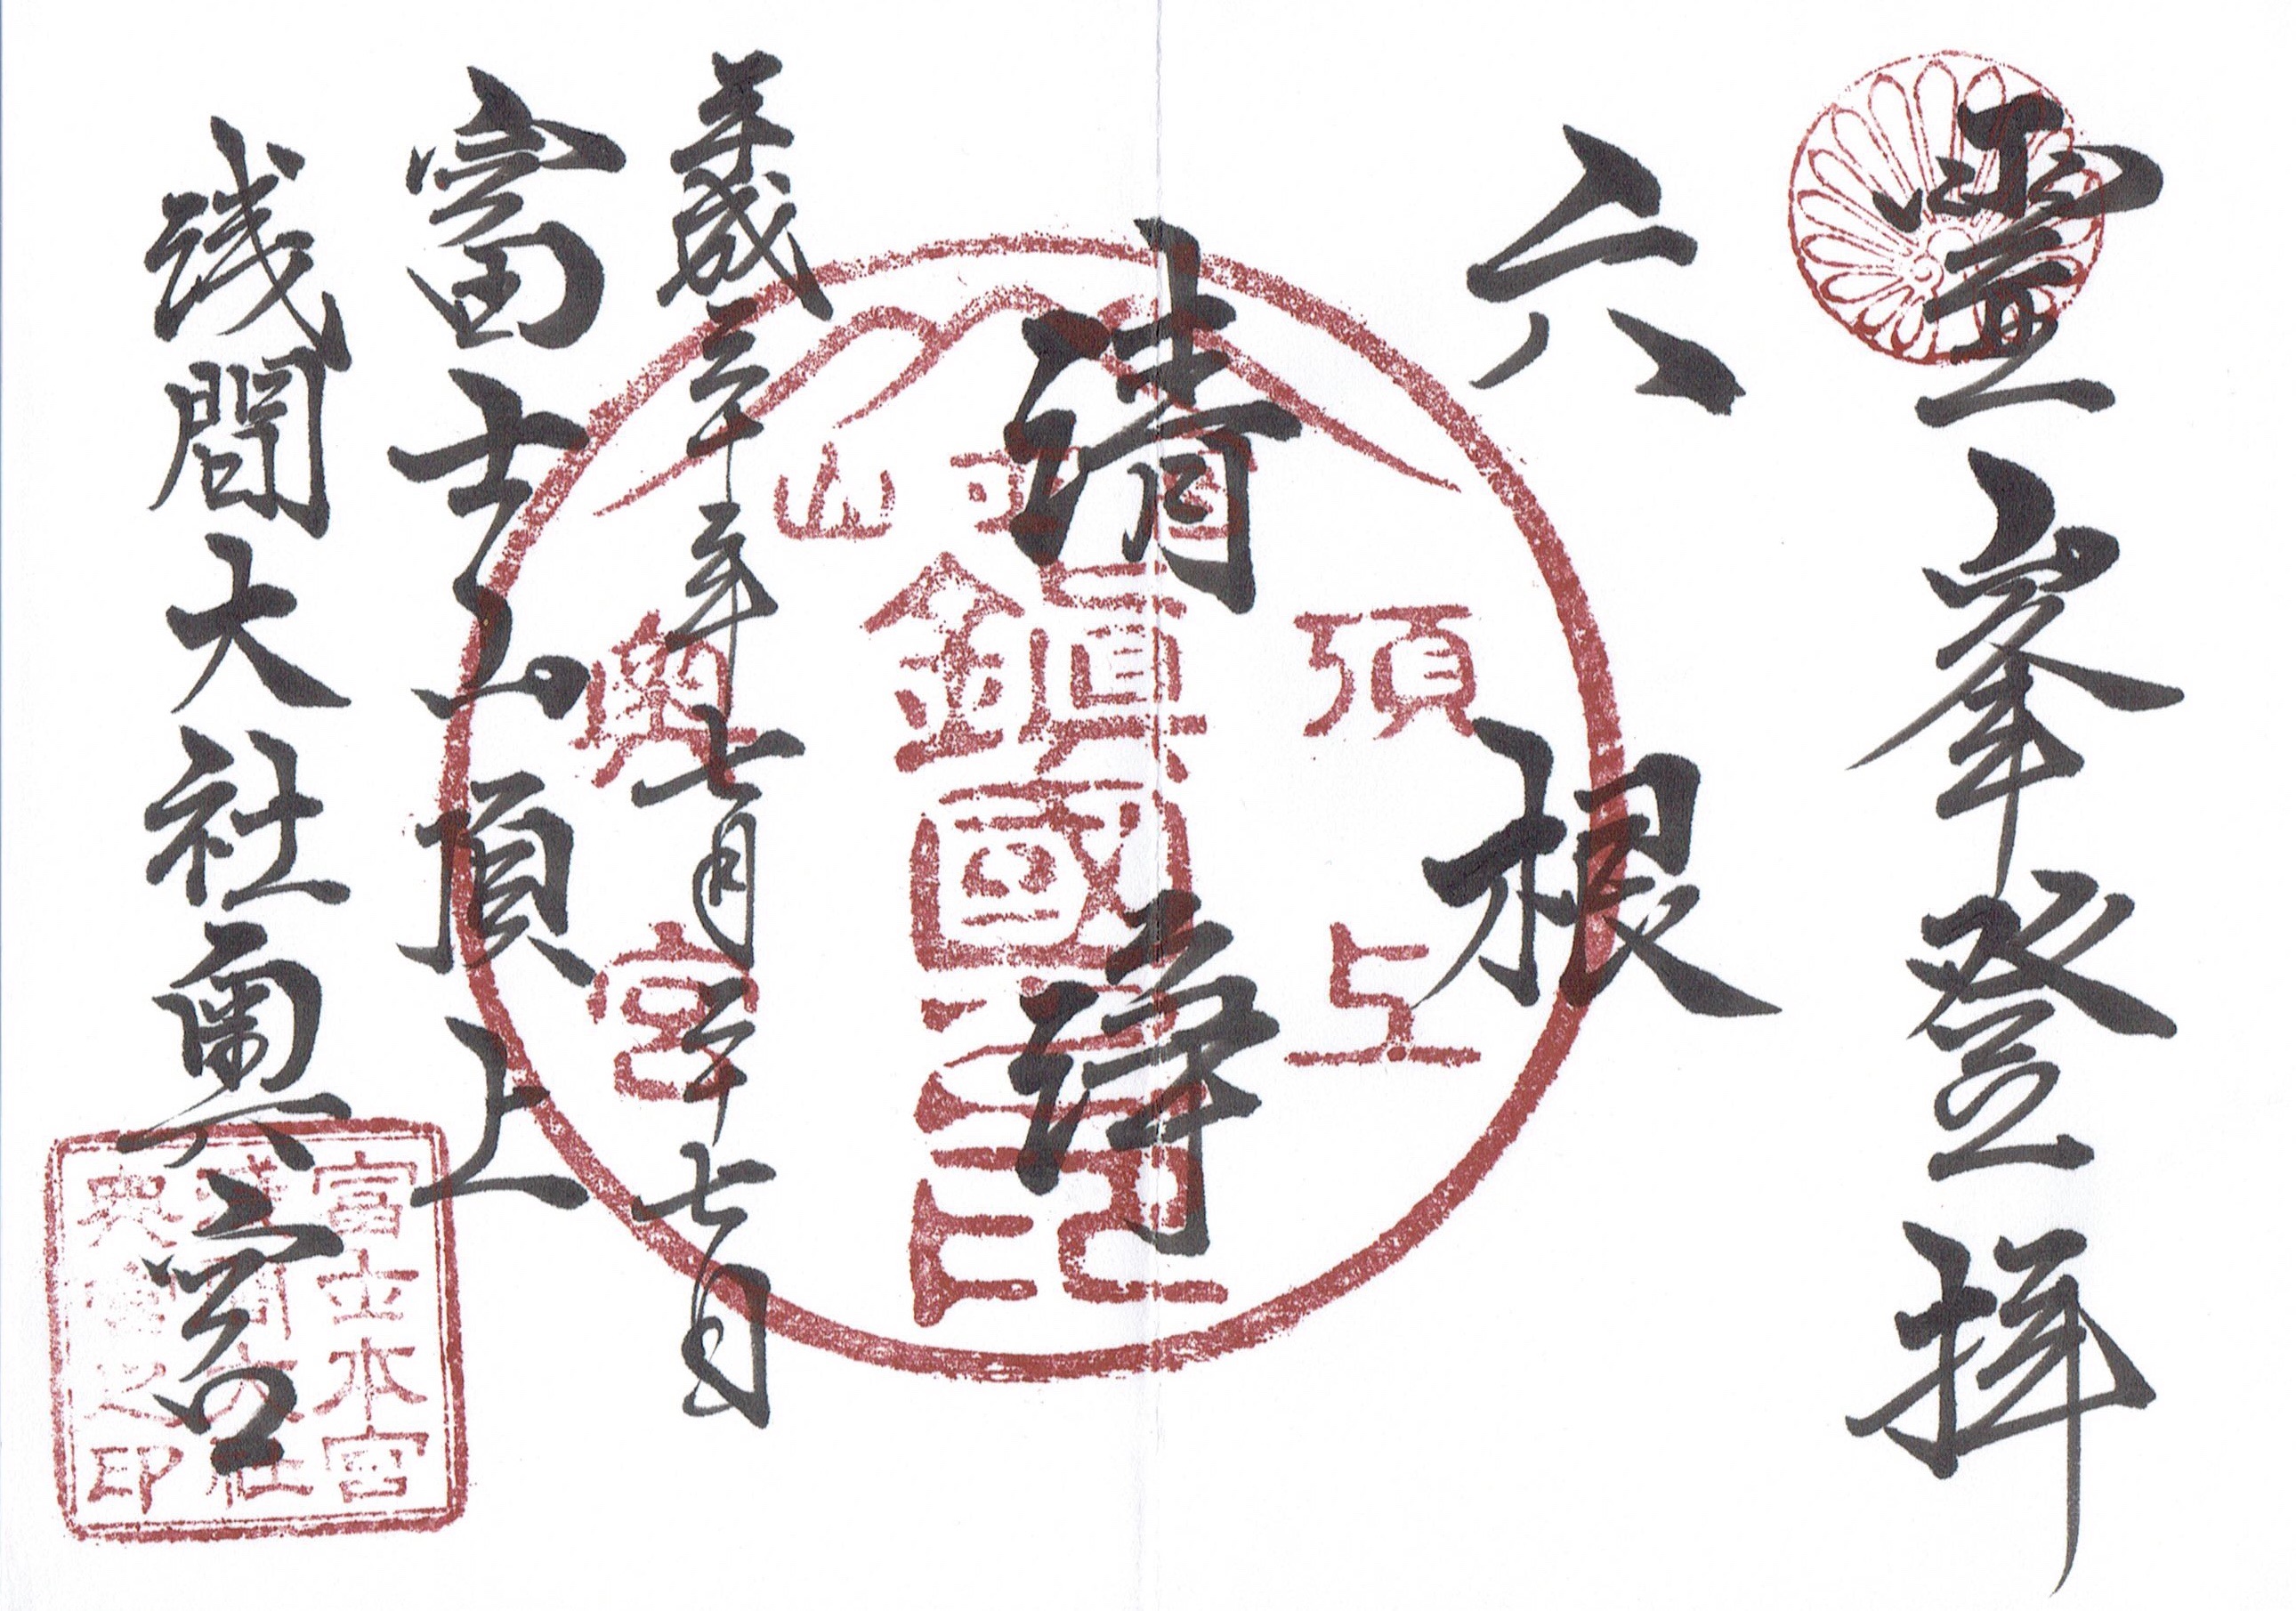 靈峯登拝
六根
清浄
平成年七月二十七日
富士山頂上
浅間大社奥宮
富士山
頂上
鎭國
奥宮
富士本宮
浅間大社
奥宮之印